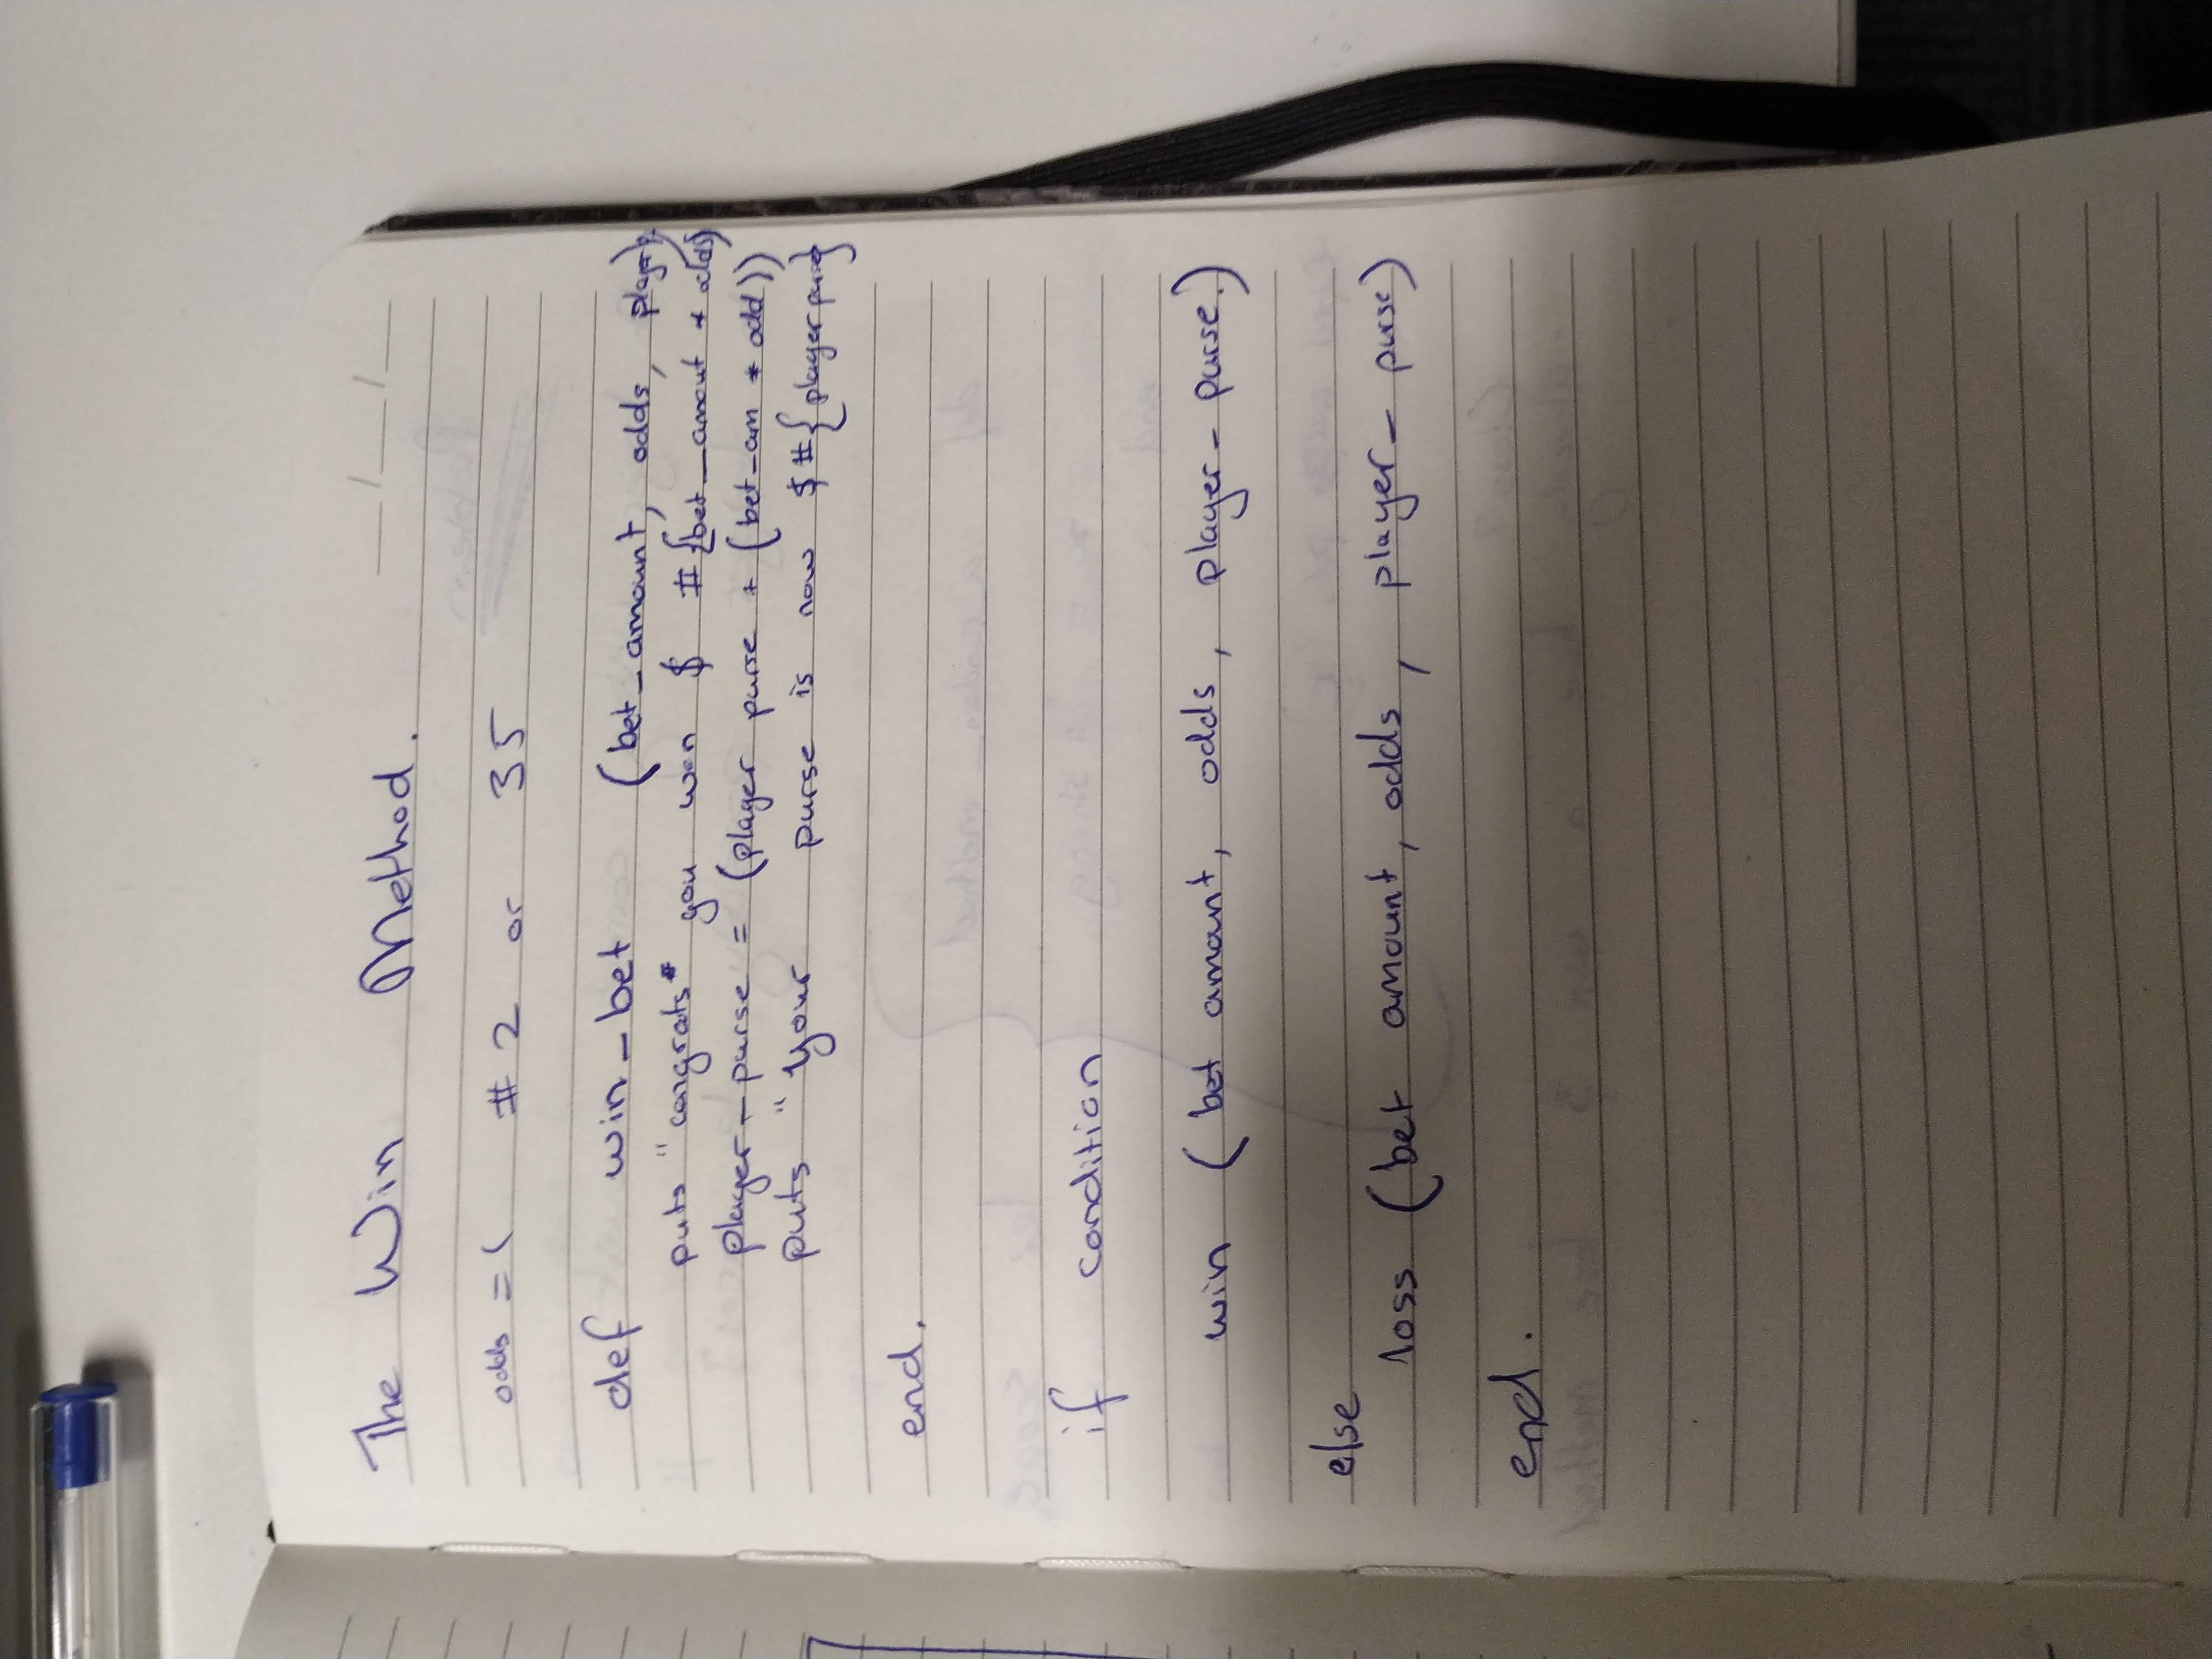 The Win Method.
odds = ( # 2 or 35
def win_bet (bet_amount, odds, player p
puts "congrats" you won $ #{bet_amout * odds)
player-purse = (player purse + (bet_am * odd))
puts "Your purse is now $#{player purse}
end.
if condition
win (bet amount, odds, player-purse.)
else
loss (bet amount, odds, player-purse)
end.